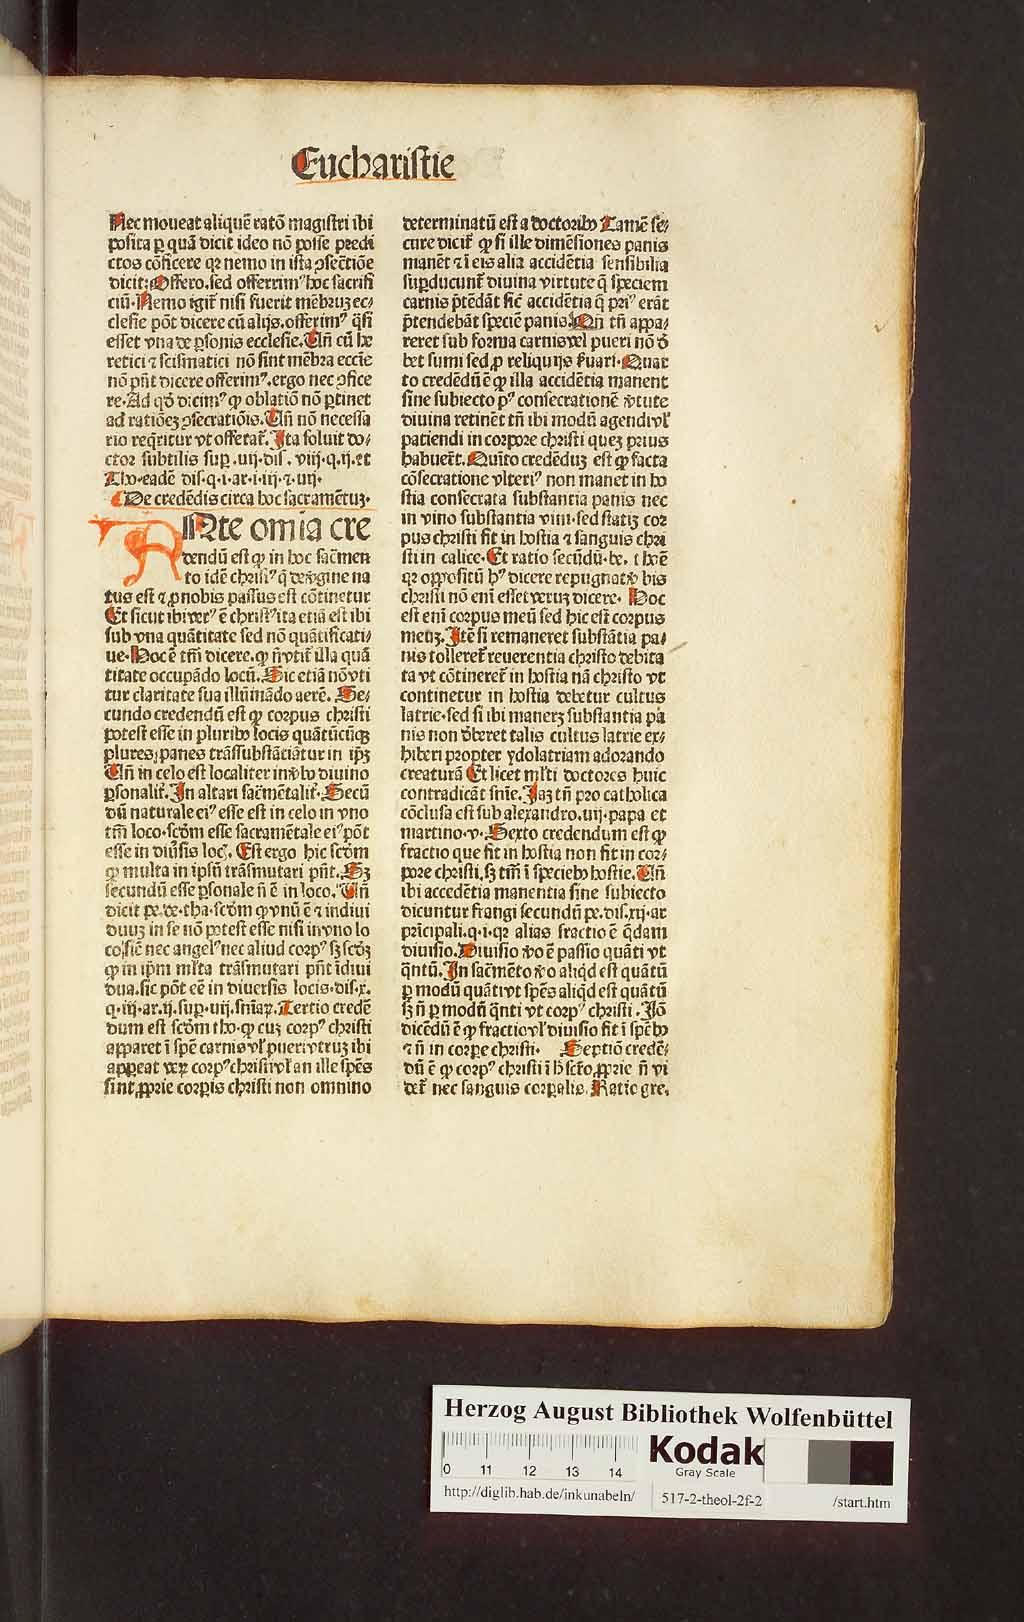 Eucharistie
Nec moueat aliquē ratō magistri ibi
posita ꝑ quā dicit ideo nō posse predi
ctos cōficere qꝛ nemo in ista ↄsec̄tiōe
dicit: Offero. sed offerrimꝰ hoc sacrifi
ciū. Nemo igit̄ nisi fuerit mēbruꝫ ec-
clesie pōt dicere cū alijs. offerimꝰ q̄si
esset vna de ꝑsonis ecclesie. Un̄ cū he
retici ⁊ scismatici nō sint mēbra eccīe
nō pn̄t dicere offerimꝰ. ergo nec ↄfice
re. Ad qd̓ dicimꝰ ꝙ oblatiō nō ꝑtinet
ad ratiōeꝫ ↄsecratiōis. Un̄ nō necessa
rio req̄ritur vt offerat̄. Ita soluit do-
ctor subtilis suꝑ .iiij. dis. viij. q. ij. et
Tho. eadē dis. q. i. ar. i. iij. ⁊. iiij.
De credēdis circa hoc sacramētuꝫ.
ANte omīa cre
dendū est ꝙ in hoc sac̄men
to idē christꝰ q̄ de v̓gine na
tus est ⁊ ꝓ nobis passus est cōtinetur
Et sicut ibi verꝰ ē christꝰ ita etiā est ibi
sub vna quātitate sed nō quātificati-
ue. Hoc ē tm̄ dicere. ꝙ n̄ vtit̄ illa quā
titate occupādo locū. Sic etiā nō vti
tur claritate sua illūinādo aerē. Se-
cundo credendū est ꝙ corpus christi
potest esse in pluribꝰ locis quātūcūqꝫ
plures panes trāssubstātiātur in ip̄ꝫ
Un̄ in celo est localiter in v̓bo diuino
ꝑsonalit̄. In altari sac̄mētalit̄. Secū
dū naturale eiꝰ esse est in celo in vno
tm̄ loco. scd̓m esse sacramētale eiꝰ pōt
esse in diu̓sis locꝭ. Est ergo hic scd̓m
ꝙ multa in ipsū trāsmutari pn̄t. Sꝫ
secundū esse ꝑsonale n̄ ē in loco. Un̄
dicit pe. de. tha. scd̓m ꝙ vnū ē ⁊ indiui
duuꝫ in se nō potest esse nisi in vno lo
co, sic̄ nec angelꝰ nec aliud corpꝰ sꝫ scd̓ꝫ
ꝙ in ip̄m ml̓ta trāsmutari pn̄t īdiui
dua. sic pōt eē in diuersis locis. dis. x.
q. iij. ar. ij. suꝑ. iiij. sn̄iaꝝ. Tertio credē
dum est scd̓m tho. ꝙ cuꝫ corpꝰ christi
apparet ī spē carnis vl̓ pueri vtruꝫ ibi
appeat veꝝ corpꝰ christi vl̓ an ille spēs
sint ꝓprie corꝑis christi non omnino
determinatū est a doctoribꝰ Tamē se-
cure dicit̄ ꝙ si ille dimēsiones panis
manēt ⁊ ī eis alia accidētia sensibilia
suꝑducunt̄ diuina virtute q̄ speciem
carnis p̄tēdāt sic̄ accidētia q̄ priꝰ erāt
p̄tendebāt speciē panis. Un̄ tn̄ appa-
reret sub forma carnis vel pueri nō d̓
bet sumi sed ꝓ reliquijs s̓uari. Quar
to credēdū ē ꝙ illa accidētia manent
sine subiecto pꝰ consecrationē v̓tute
diuina retinēt tn̄ ibi modū agendi vl̓
patiendi in corpore christi queꝫ prius
habuer̄t. Quīto credēduꝫ est ꝙ facta
cōsecratione vlteriꝰ non manet in ho
stia consecrata substantia panis nec
in vino substantia vini. sed statiꝫ cor
pus christi fit in hostia ⁊ sanguis chri
sti in calice. Et ratio secūdū. be.
qꝛ oppositū hꝰ dicere repugnat v̓bis
christi nō enī esset veruꝫ dicere. Hoc
est enī corpus meū sed hic est corpus
meuꝫ. Itē si remaneret substātia pa-
nis tolleret̄ reuerentia christo debita
ta vt cōtineret̄ in hostia nā christo vt
continetur in hostia debetur cultus
latrie. sed si ibi maneꝫ substantia pa
nis non d̓beret talis cultus latrie ex-
hiberi propter ydolatriam adorando
creaturā Et licet ml̓ti doctores huic
contradicāt sn̄ie. Jaꝫ tn̄ pro catholica
cōclusa est sub alexandro. iiij. papa et
martino. v. Sexto credendum est ꝙ
fractio que fit in hostia non fit in cor-
pore christi, sꝫ tm̄ ī speciebꝰ hostie. Un̄
ibi accedētia manentia sine subiecto
dicuntur frangi secundū pe. dis. xij. ar
pr̄icipali. q. i. qꝛ alias fractio ē q̄dam
diuisio. Diuisio v̓o ē passio quāti vt
q̄ntū. In sac̄mēto v̓o aliqd̓ est quātū
ꝑ modū quāti vt spēs aliqd̓ est quātū
sꝫ n̄ ꝑ modū q̄nti vt corpꝰ christi. Jō
dicēdū ē ꝙ fractio vl̓ diuisio fit ī spēbꝰ
⁊ n̄ in corpe christi. Septiō credē-
dū ē ꝙ corpꝰ christi ī h̓ sct̄o, ꝓprie n̄ vi
det̄ nec sanguis corꝑalis. Ratio gre.
Herzog August Bibliothek Wolfenbüttel
0 11 12 13 14
Kodak
Gray Scale
http://diglib.hab.de/inkunabeln/
517-2-theol-2f-2
/start.htm